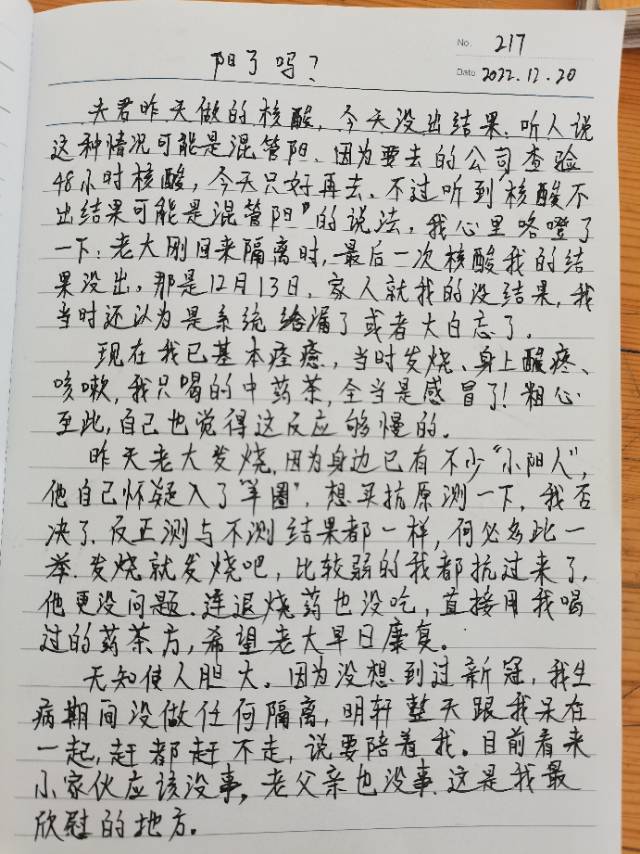 No. 217
阳了吗?
Date 2022.12.20
夫君昨天做的核酸,今天没出结果,听人说
这种情况可能是混管阳.因为要去的公司查验
48小时核酸,今天只好再去.不过听到"核酸不
出结果可能是混管阳"的说法,我心里咯噔了
一下:老大刚回来隔离时,最后一次核酸我的结
果没出。那是12月13日,家人就我的没结果,我
当时还认为是系统给漏了或者大白忘了。
现在我已基本痊愈,当时发烧、身上酸疼、
咳嗽,我只喝的中药茶,全当是感冒了!粗心
至此,自己也觉得这反应够慢的。
昨天老大发烧,因为身边已有不少"小阳人",
他自己怀疑入了"羊圈".想买抗原测一下,我否
决了.反正测与不测结果都一样,何必多此一
举.发烧就发烧吧,比较弱的我都抗过来了,
他更没问题.连退烧药也没吃,直接用我喝
过的药茶方,希望老大早日康复。
无知使人胆大。因为没想到过新冠,我生
病期间没做任何隔离,明轩整天跟我呆在
一起,赶都赶不走,说要陪着我。目前看来
小家伙应该没事,老父亲也没事.这是我最
欣慰的地方。